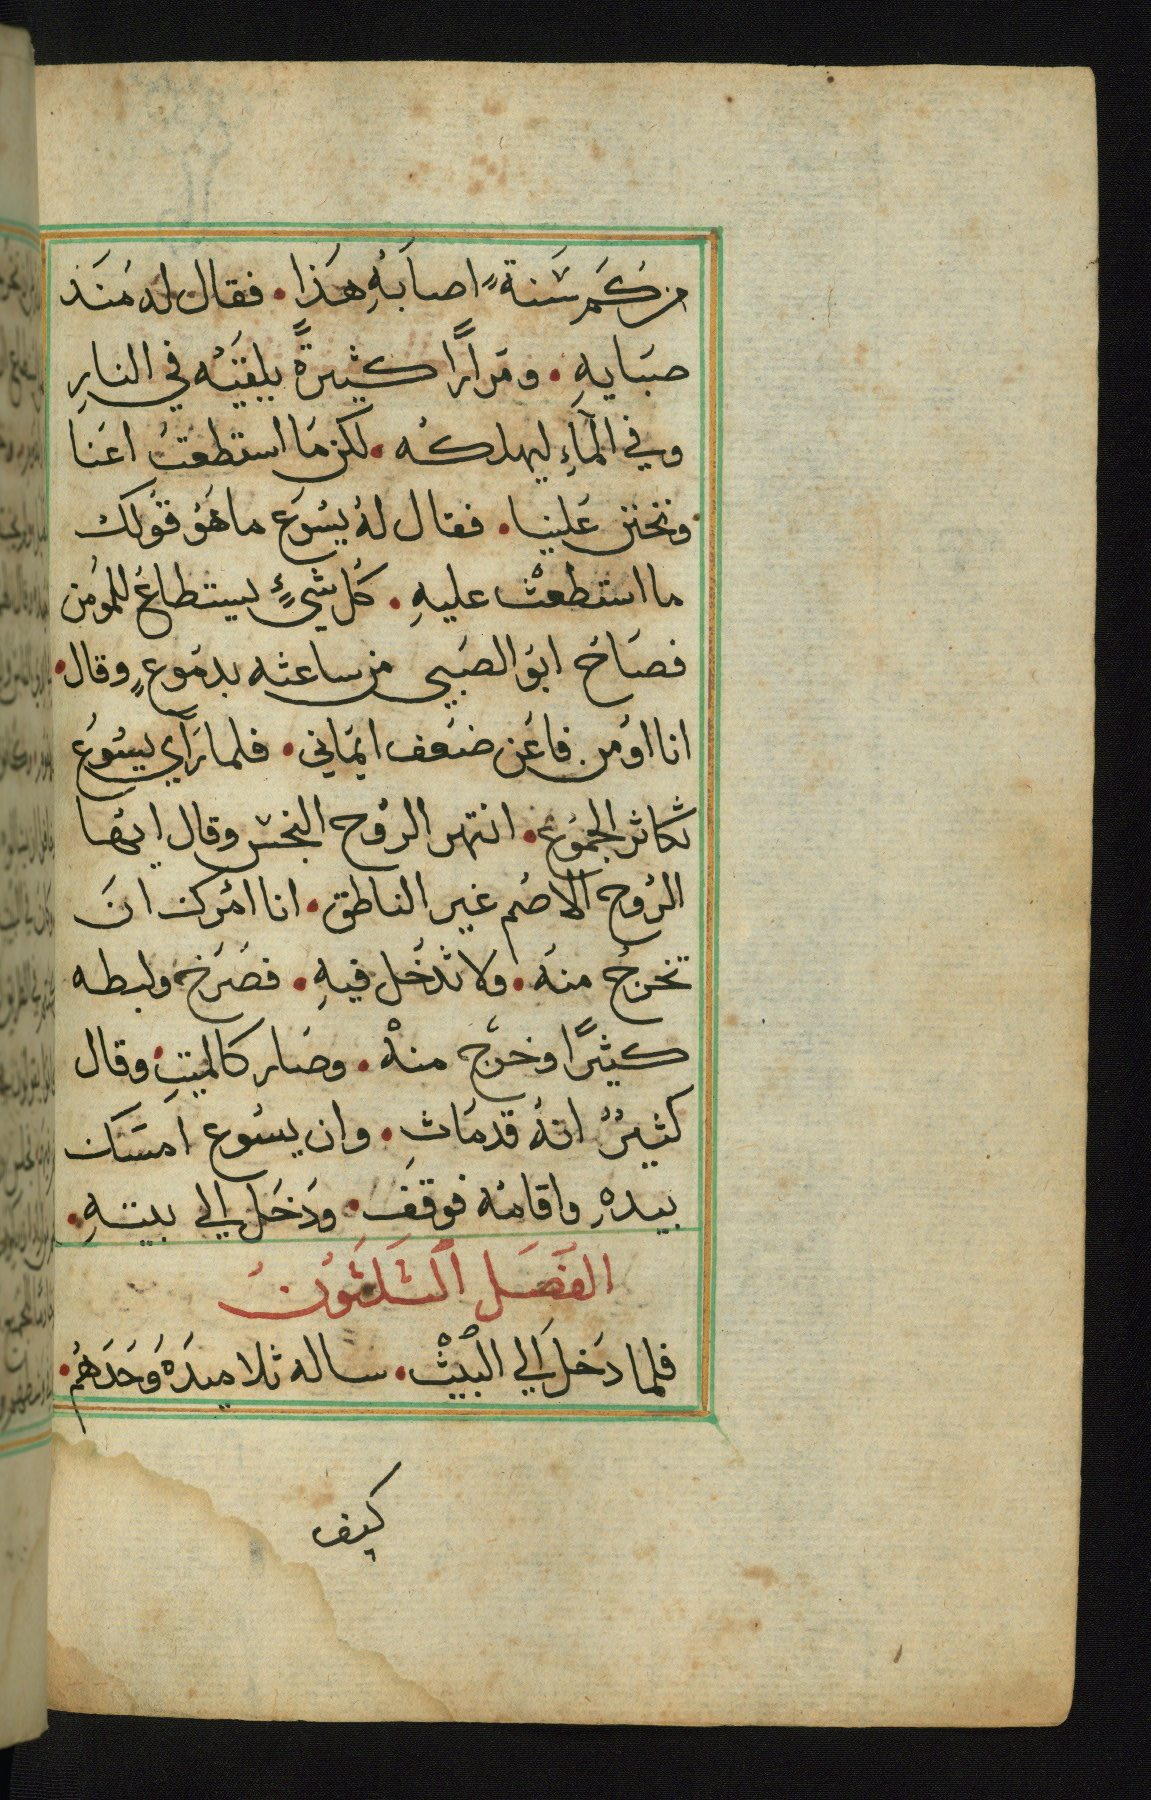 من كم سَنة اصابَهُ هَذا. فقال له مَنَذ
صبَايهِ. ومَرارًا كثيرةً يلقيَه في النارِ
وفي المآءِ ليهلكه. لكن مَا استطعتَ اعَنا
وتحنن عَلينا. فقال لهُ يسُوَع ما هَوُ قوَلك
ما استطعْت عليهِ. كُل شيءٍ يستطاعُ للمُومن
فصَاحَ ابوَ الصَبي من ساعته بدمَوعٍ وقال.
انا اومن فاعَن ضعَف ايمَاني. فلما رَآي يسُوَعَ
تكاثر الجموَع. انتهر الروُح النجس وقال ايَها
الروُح الاصُم غير الناطق. انا امُرك انَ
تخرجُ منهَ. ولا تدخَل فيهِ. فصَرَخ ولبطه
كثيرًا وخرَج منهْ. وصَار كالميتِ. وقال
كثيرٌ انهُ قدمَات. وان يسُوع امسَك
بيدهِ واقامَه فوقفَ. ودَخَل الي بيتهِ.
الفَصَل الثَلَثوُنَ
فلما دَخل الي البيْت. ساله تلاميدَهُ وَحَدَهُم.
كيف